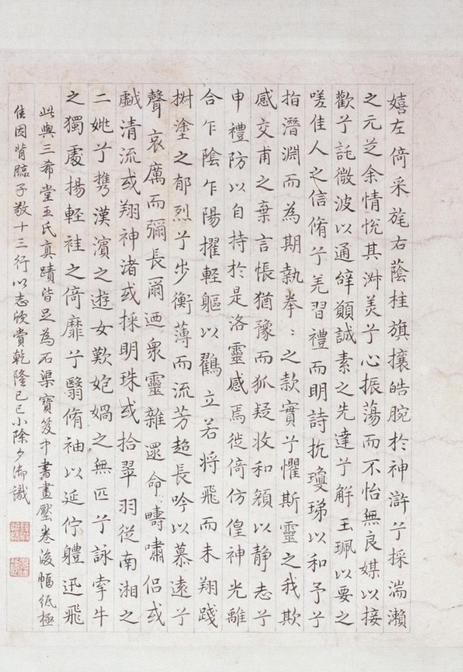 嬉左倚采旄右蔭桂旗攘皓腕於神滸兮採湍瀨
之元芝余情悅其淑美兮心振蕩而不怡無良媒以接
歡兮託微波以通辭願誠素之先達兮解玉珮以要之
嗟佳人之信脩兮羌習禮而明詩抗瓊珶以和予兮
指潛淵而為期執拳〻之款實兮懼斯靈之我欺
感交甫之棄言悵猶豫而狐疑收和顏以靜志兮
申禮防以自持於是洛靈感焉徙倚仿偟神光離
合乍陰乍陽擢輕軀以鸖立若將飛而未翔踐
椒塗之郁烈兮步衡薄而流芳超長吟以慕遠兮
聲哀厲而彌長爾迺衆靈雜遝命疇嘯侶或
戲清流或翔神渚或採明珠或拾翠羽從南湘之
二姚兮携漢濱之遊女歎匏媧之無匹兮詠牽牛
之獨處揚輕袿之倚靡兮翳脩袖以延佇軆迅飛
此與三希堂王氏真蹟皆足為石渠寶笈中書畫壓卷後幅紙極
佳因背臨子敬十三行以志欣賞乾隆己巳小除夕御識